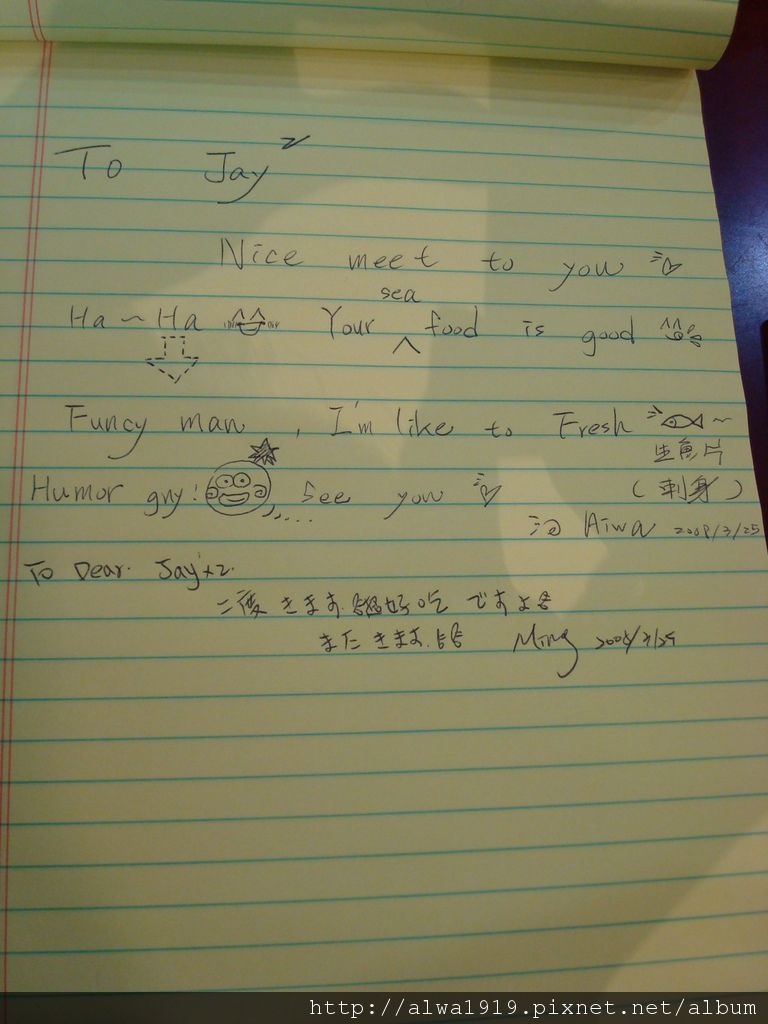 To Jay²
Nice meet to you
Ha ~ Ha Your sea food is good
Funcy man , I'm like to Fresh ~
生魚片
Humor guy! See you (刺身)
Aiwa 2008/3/25
To Dear. Jay x2.
二度 きます. 超好吃 ですよ
また きます. Ming 2008/3/25
http://alwa1919.pixnet.net/album